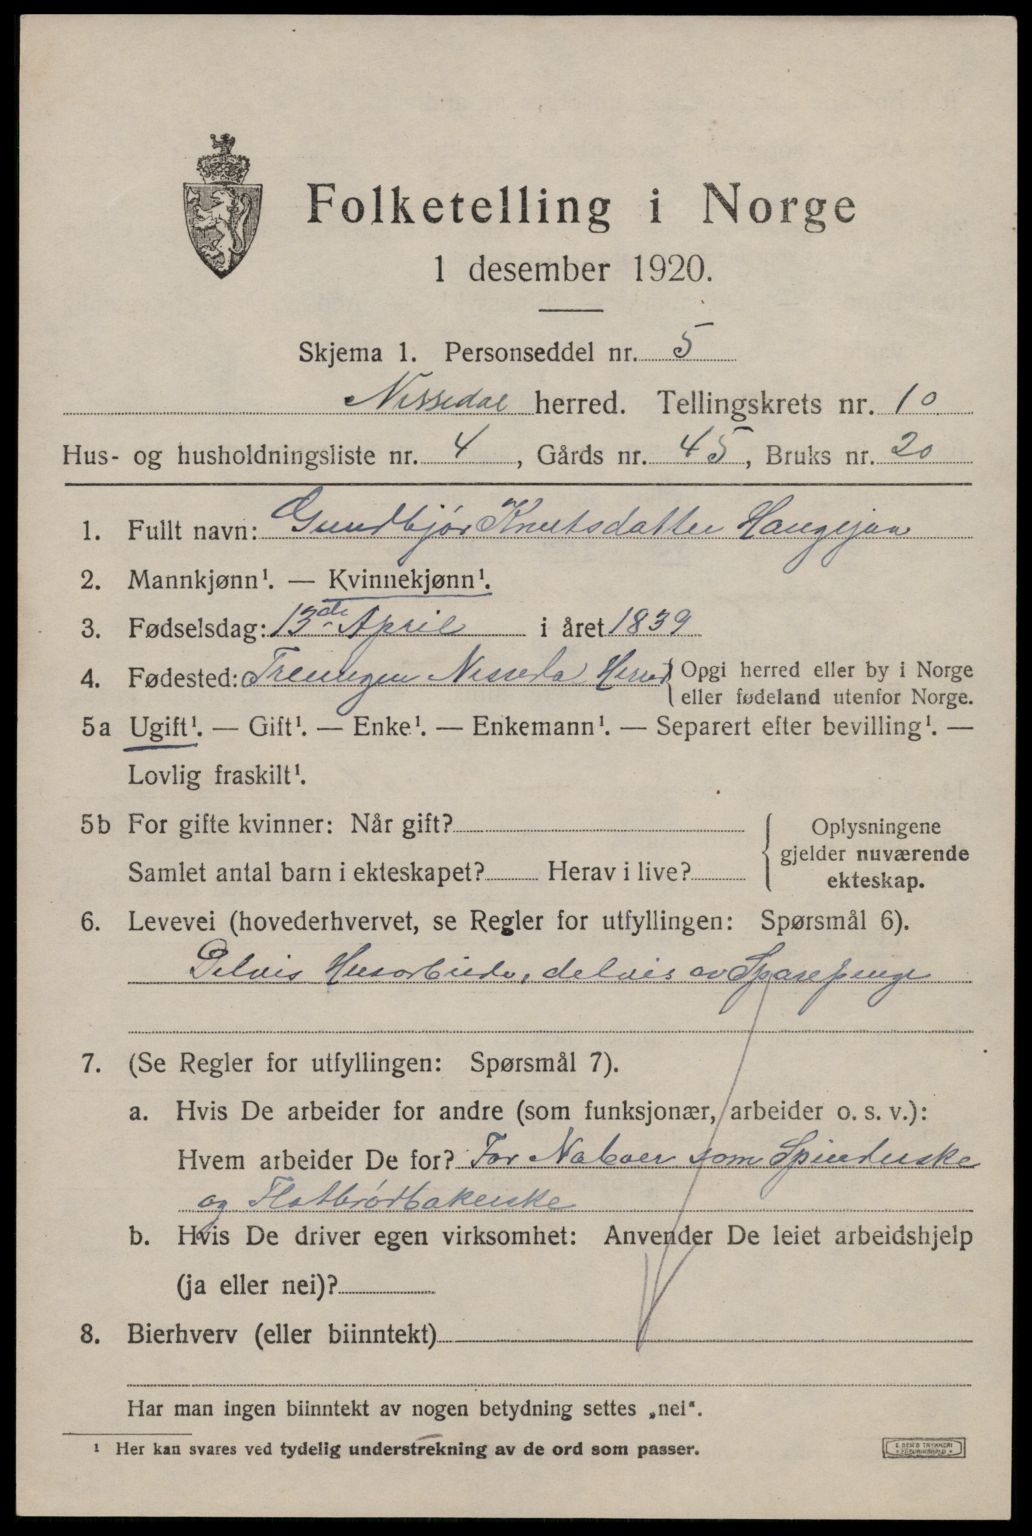 Folketelling i Norge
1 desember 1920.
Skjema 1. Personseddel nr. 5
Nissedal herred. Tellingskrets nr. 10
Hus- og husholdningsliste nr. 4, Gårds nr. 45, Bruks nr. 20
1. Fullt navn: Gundbjør Knutsdatter Haugsjaa
2. Mannkjønn¹. — Kvinnekjønn¹.
3. Fødselsdag: 13de April i året 1839
4. Fødested: Treungen Nisseda Herred { Opgi herred eller by i Norge
eller fødeland utenfor Norge.
5a Ugift¹. — Gift¹. — Enke¹. — Enkemann¹. — Separert efter bevilling¹. —
Lovlig fraskilt¹.
5b For gifte kvinner: Når gift?
Samlet antal barn i ekteskapet? Herav i live?
Oplysningene
gjelder nuværende
ekteskap.
6. Levevei (hovederhvervet, se Regler for utfyllingen: Spørsmål 6).
Delvis Husarbeide, delvis av Sparepenge
7. (Se Regler for utfyllingen: Spørsmål 7).
a. Hvis De arbeider for andre (som funksjonær, arbeider o. s. v.):
Hvem arbeider De for? For Naboer som Spinderske
og Flatbrødbakerske
b. Hvis De driver egen virksomhet: Anvender De leiet arbeidshjelp
(ja eller nei)?
8. Bierhverv (eller biinntekt)
Har man ingen biinntekt av nogen betydning settes „nei“.
¹ Her kan svares ved tydelig understrekning av de ord som passer.